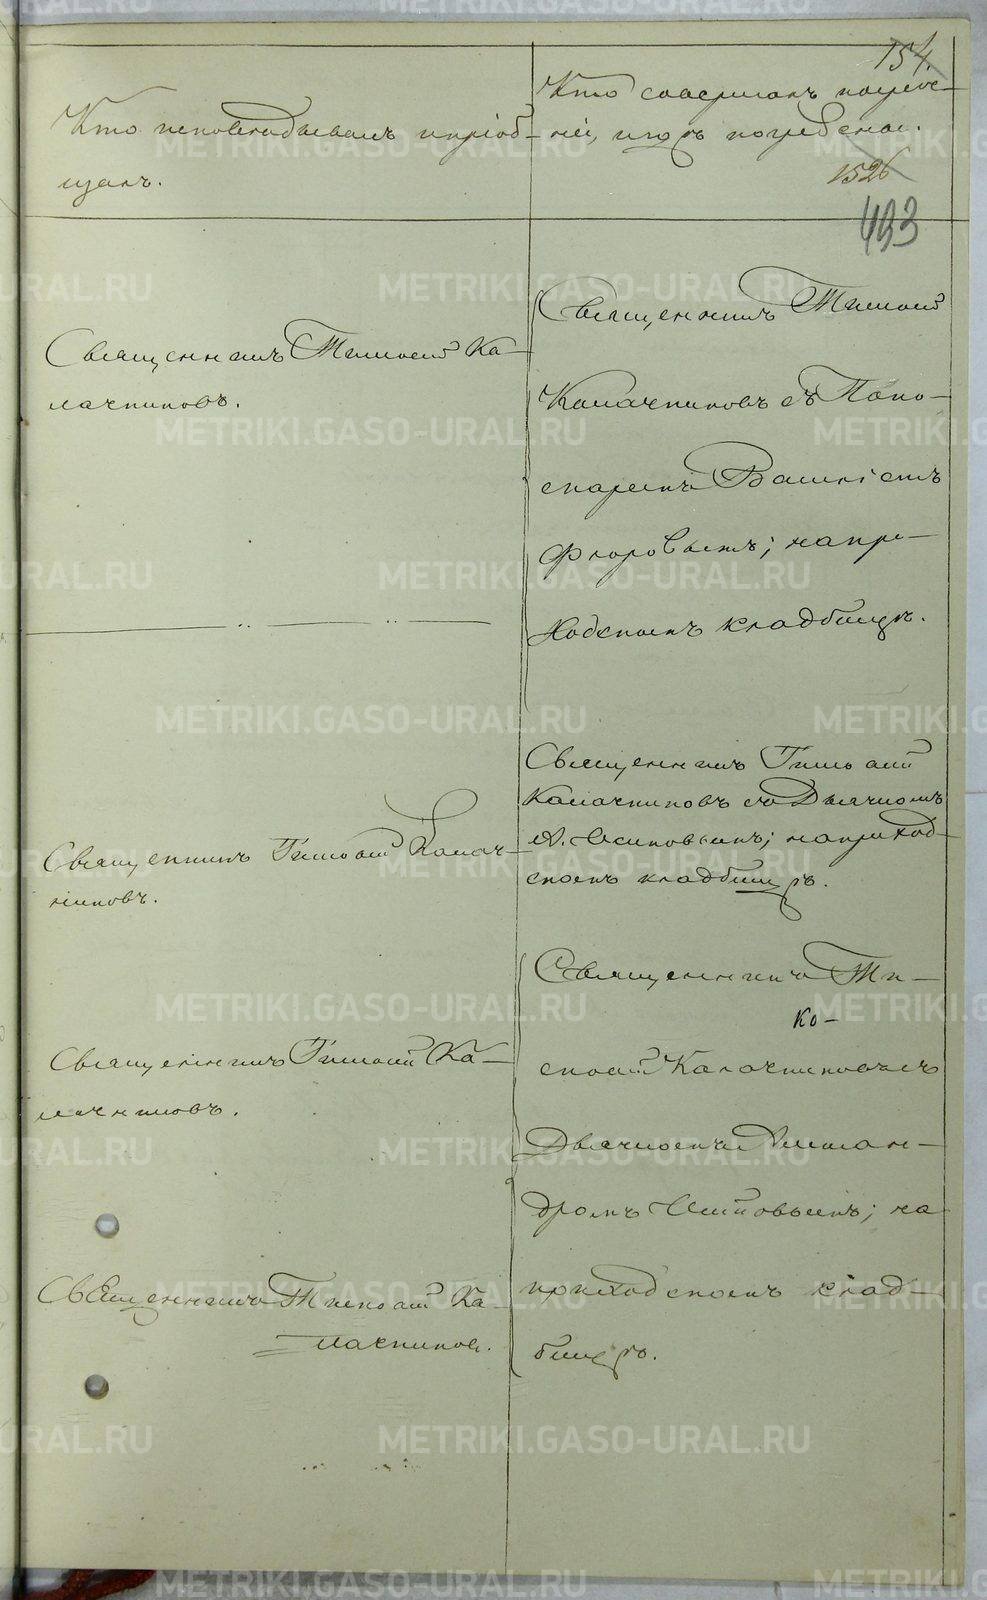 154.
Кто исповѣдывалъ и пріоб-
щалъ.
Кто совершалъ погребе-
ніе, и гдѣ погребены.
1526
493
Священникъ Тимоѳей Ка-
лачниковъ.
Священникъ Тимоѳей
Калачниковъ съ Поно-
маремъ
Флоровымъ; на при-
ходскомъ кладбищѣ.
Священникъ Тимоѳей Калач-
никовъ.
Священникъ Тимоѳей
Калачниковъ съ Дьячкомъ
А. Осиповымъ; на приход-
скомъ кладбищѣ.
Священникъ Тимоѳей Ка-
лачниковъ.
Священникъ Ти-
ко-
Калачниковъ съ
Дьячкомъ Алексан-
дромъ Осиповымъ; на
приходскомъ клад-
бищѣ.
Священникъ Тимоѳей Ка-
лачниковъ.
METRIKI.GASO-URAL.RU